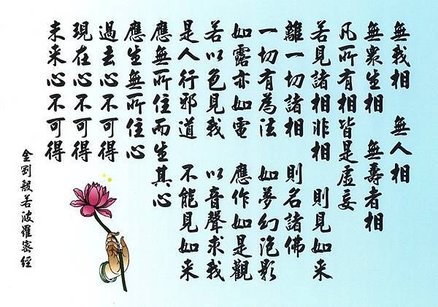 無我相　無人相
無衆生相　無壽者相
凡所有相皆是虛妄
若見諸相非相　則見如来
離一切諸相　則名諸佛
一切有為法　如夢幻泡影
如露亦如電　應作如是觀
若以色見我　以音聲求我
是人行邪道　不能見如来
應無所住而生其心
應生無所住心
過去心不可得
現在心不可得
未来心不可得
金剛般若波羅蜜經